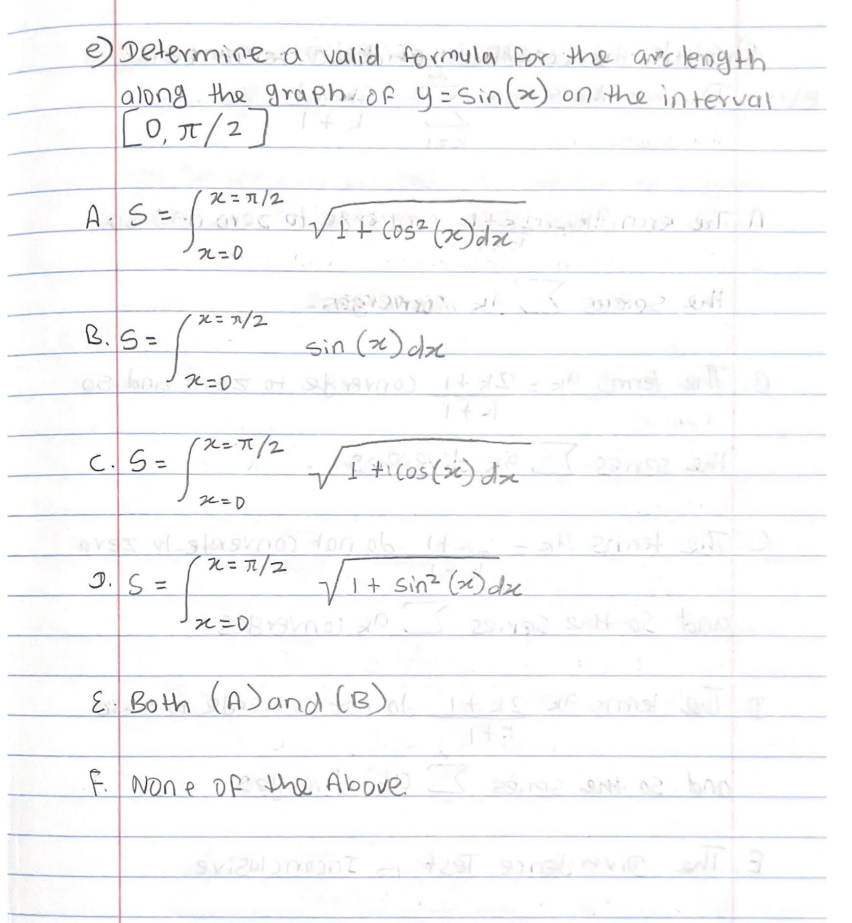 e) Determine a valid formula for the arc length
along the graph of y = sin(x) on the interval
[0, π/2]
A. S = ∫_{x=0}^{x=π/2} √(1 + cos² (x) dx)
B. S = ∫_{x=0}^{x=π/2} sin (x) dx
C. S = ∫_{x=0}^{x=π/2} √(1 + cos(x) dx)
D. S = ∫_{x=0}^{x=π/2} √(1 + sin² (x) dx)
E. Both (A) and (B)
F. None of the Above.